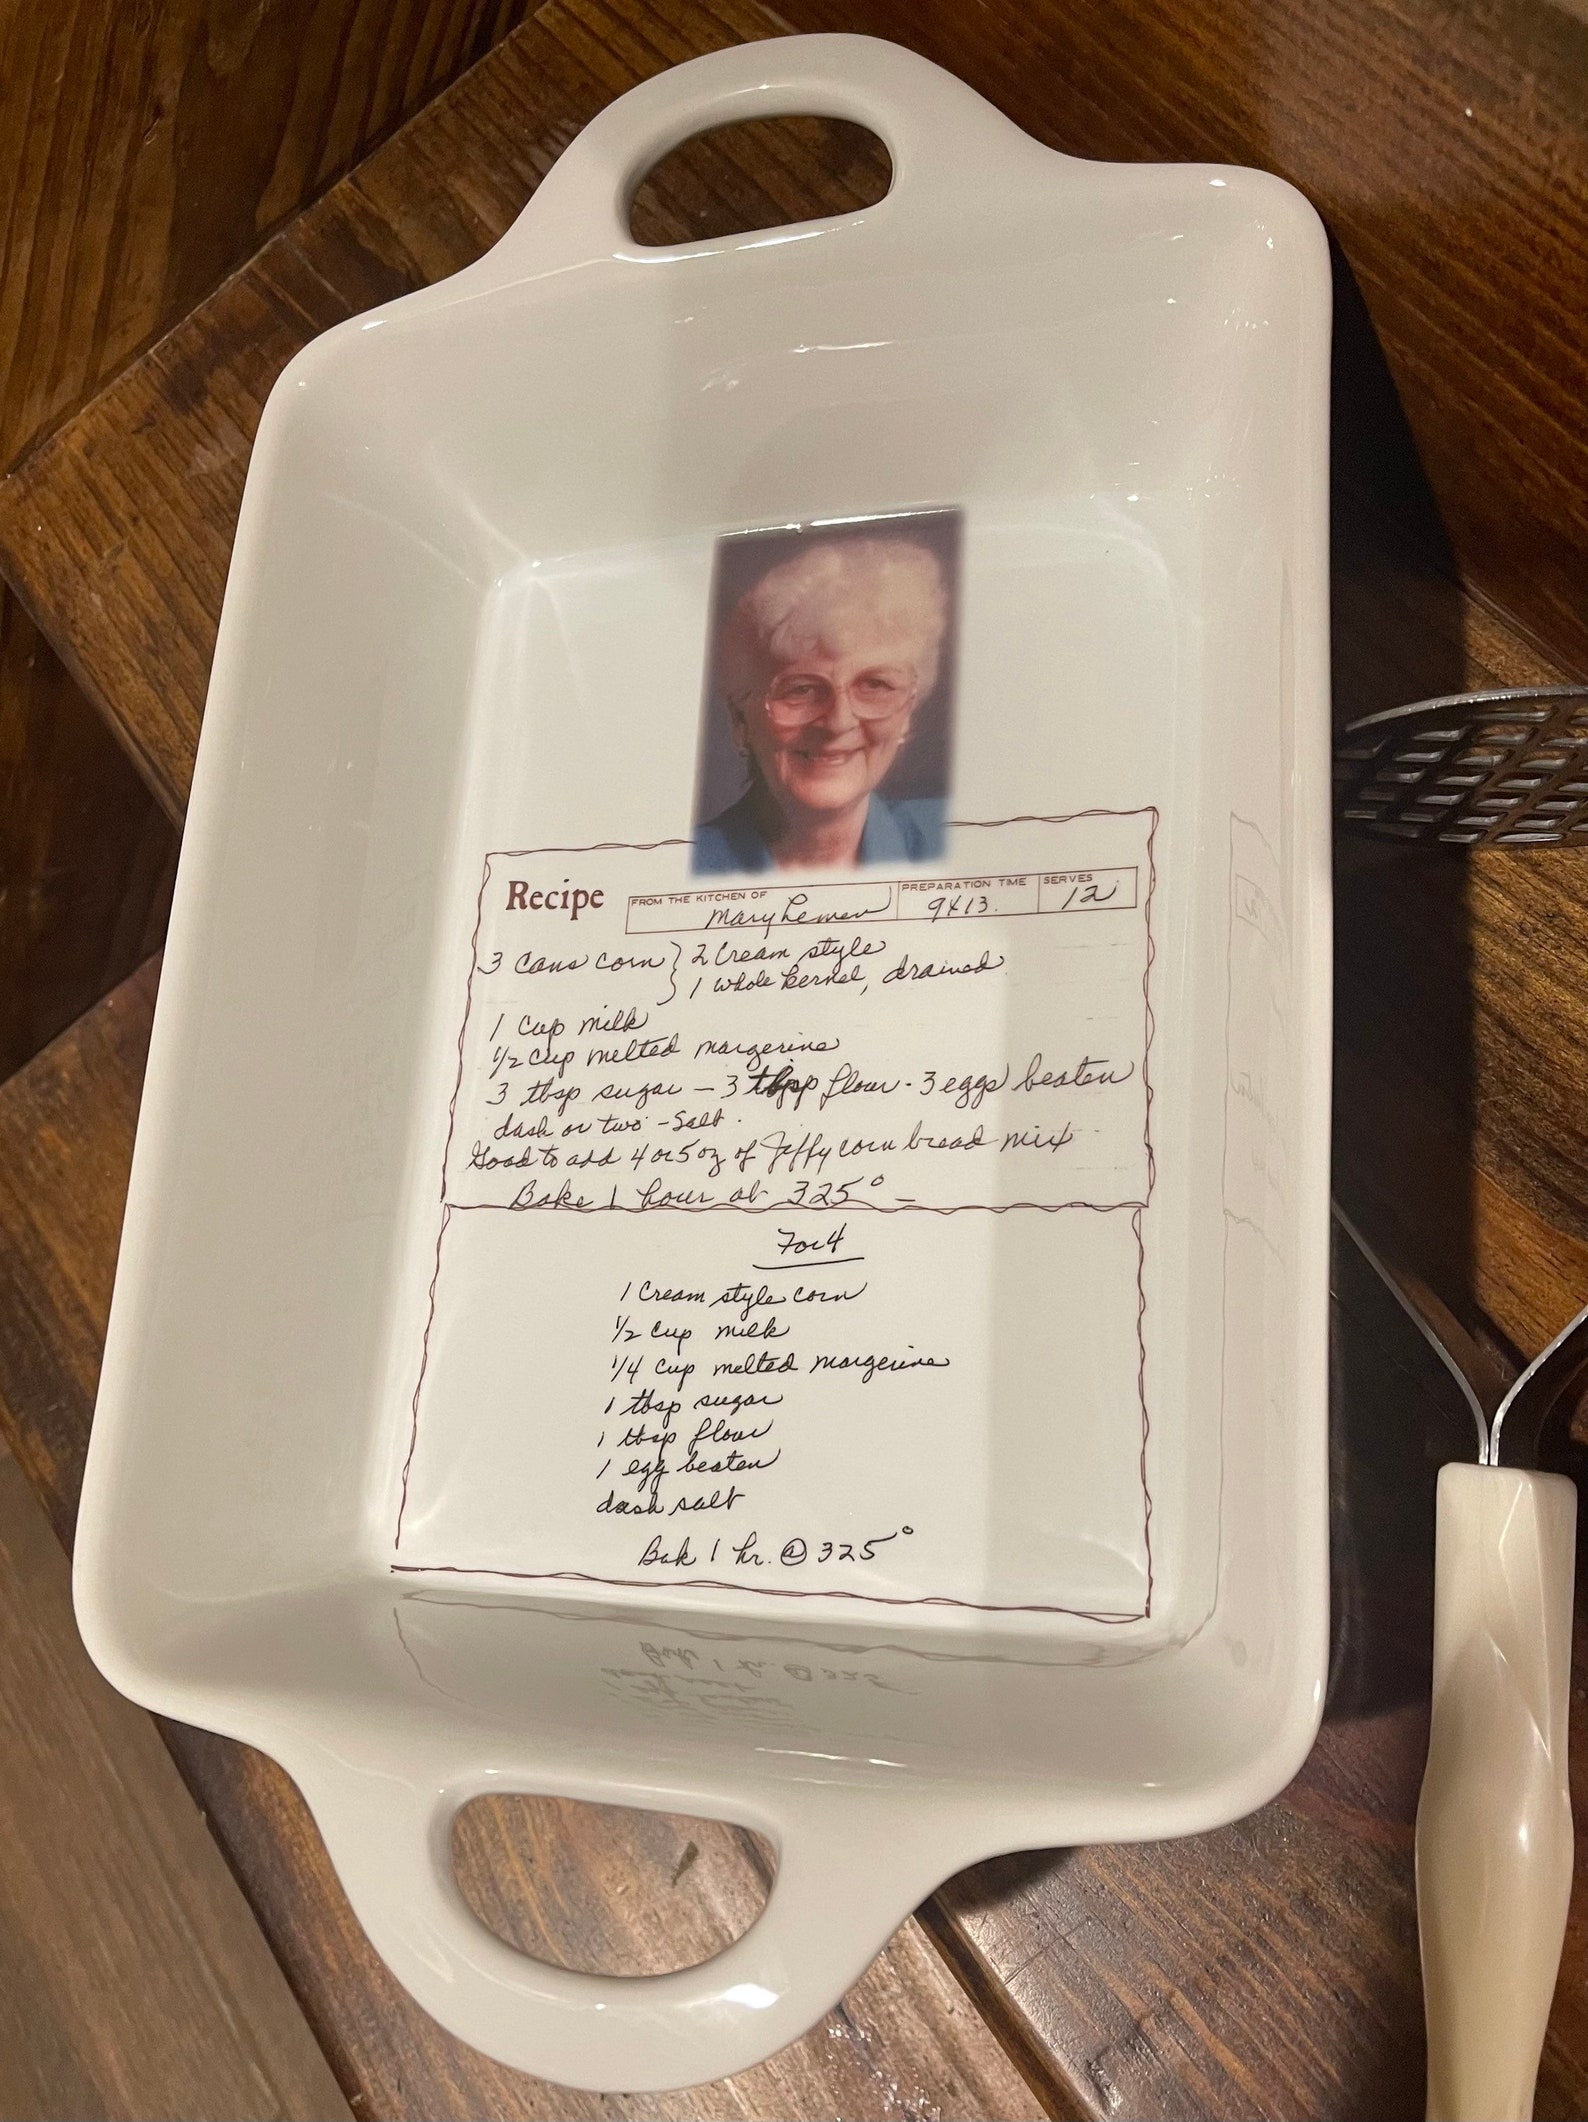 Recipe
FROM THE KITCHEN OF Mary Lemen
PREPARATION TIME 9x13.
SERVES 12
3 cans corn } 2 Cream style
1 whole kernel, drained
1 cup milk
1/2 cup melted margerine
3 tbsp sugar - 3 tbsp flour - 3 eggs beaten
dash or two - salt.
Good to add 4 or 5 oz of Jiffy corn bread mix
Bake 1 hour at 325° -
For 4
1 Cream style corn
1/2 cup milk
1/4 cup melted margerine
1 tbsp sugar
1 tbsp flour
1 egg beaten
dash salt
Bak 1 hr. @ 325°